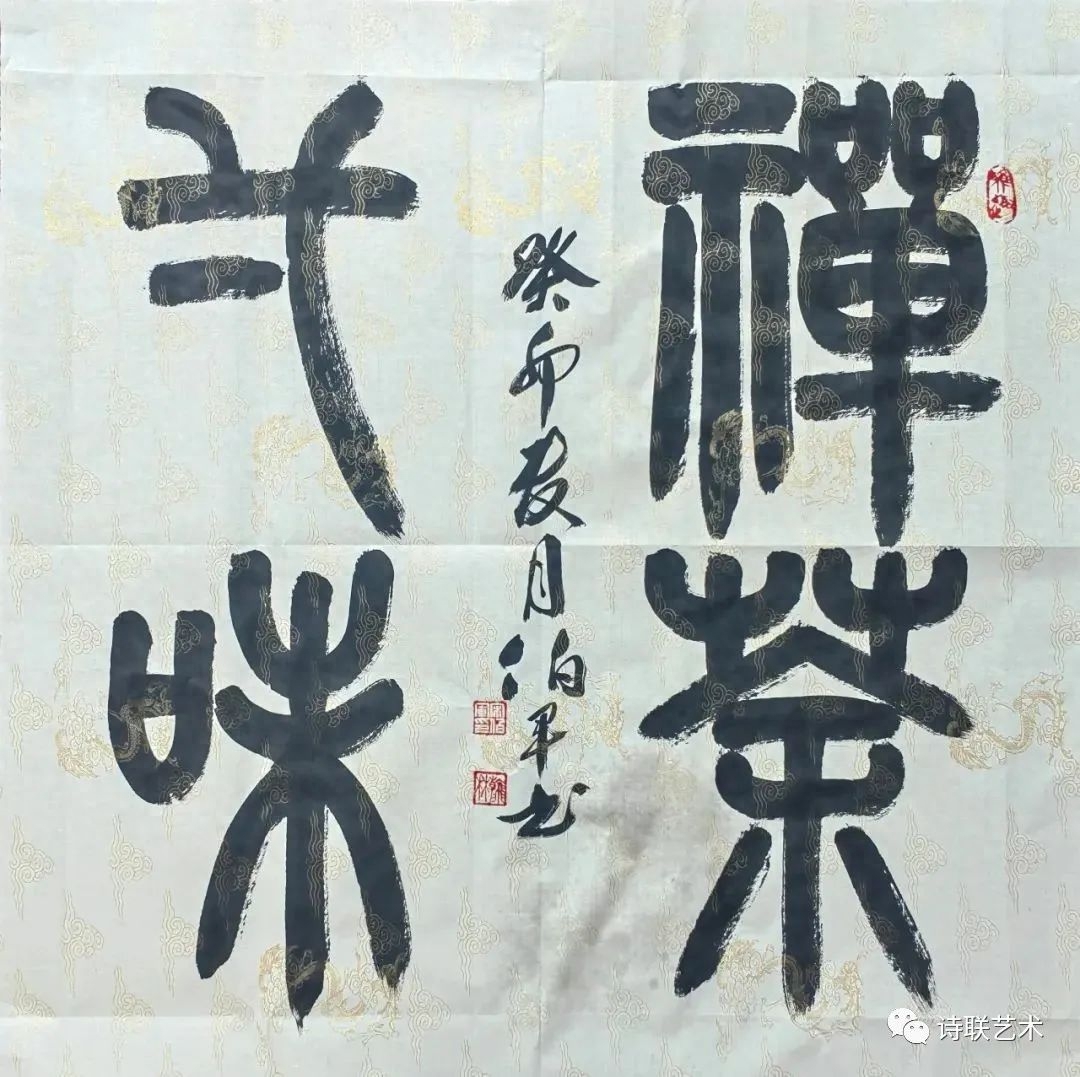 禪茶
弌味
癸卯夏月泊军书
诗联艺术